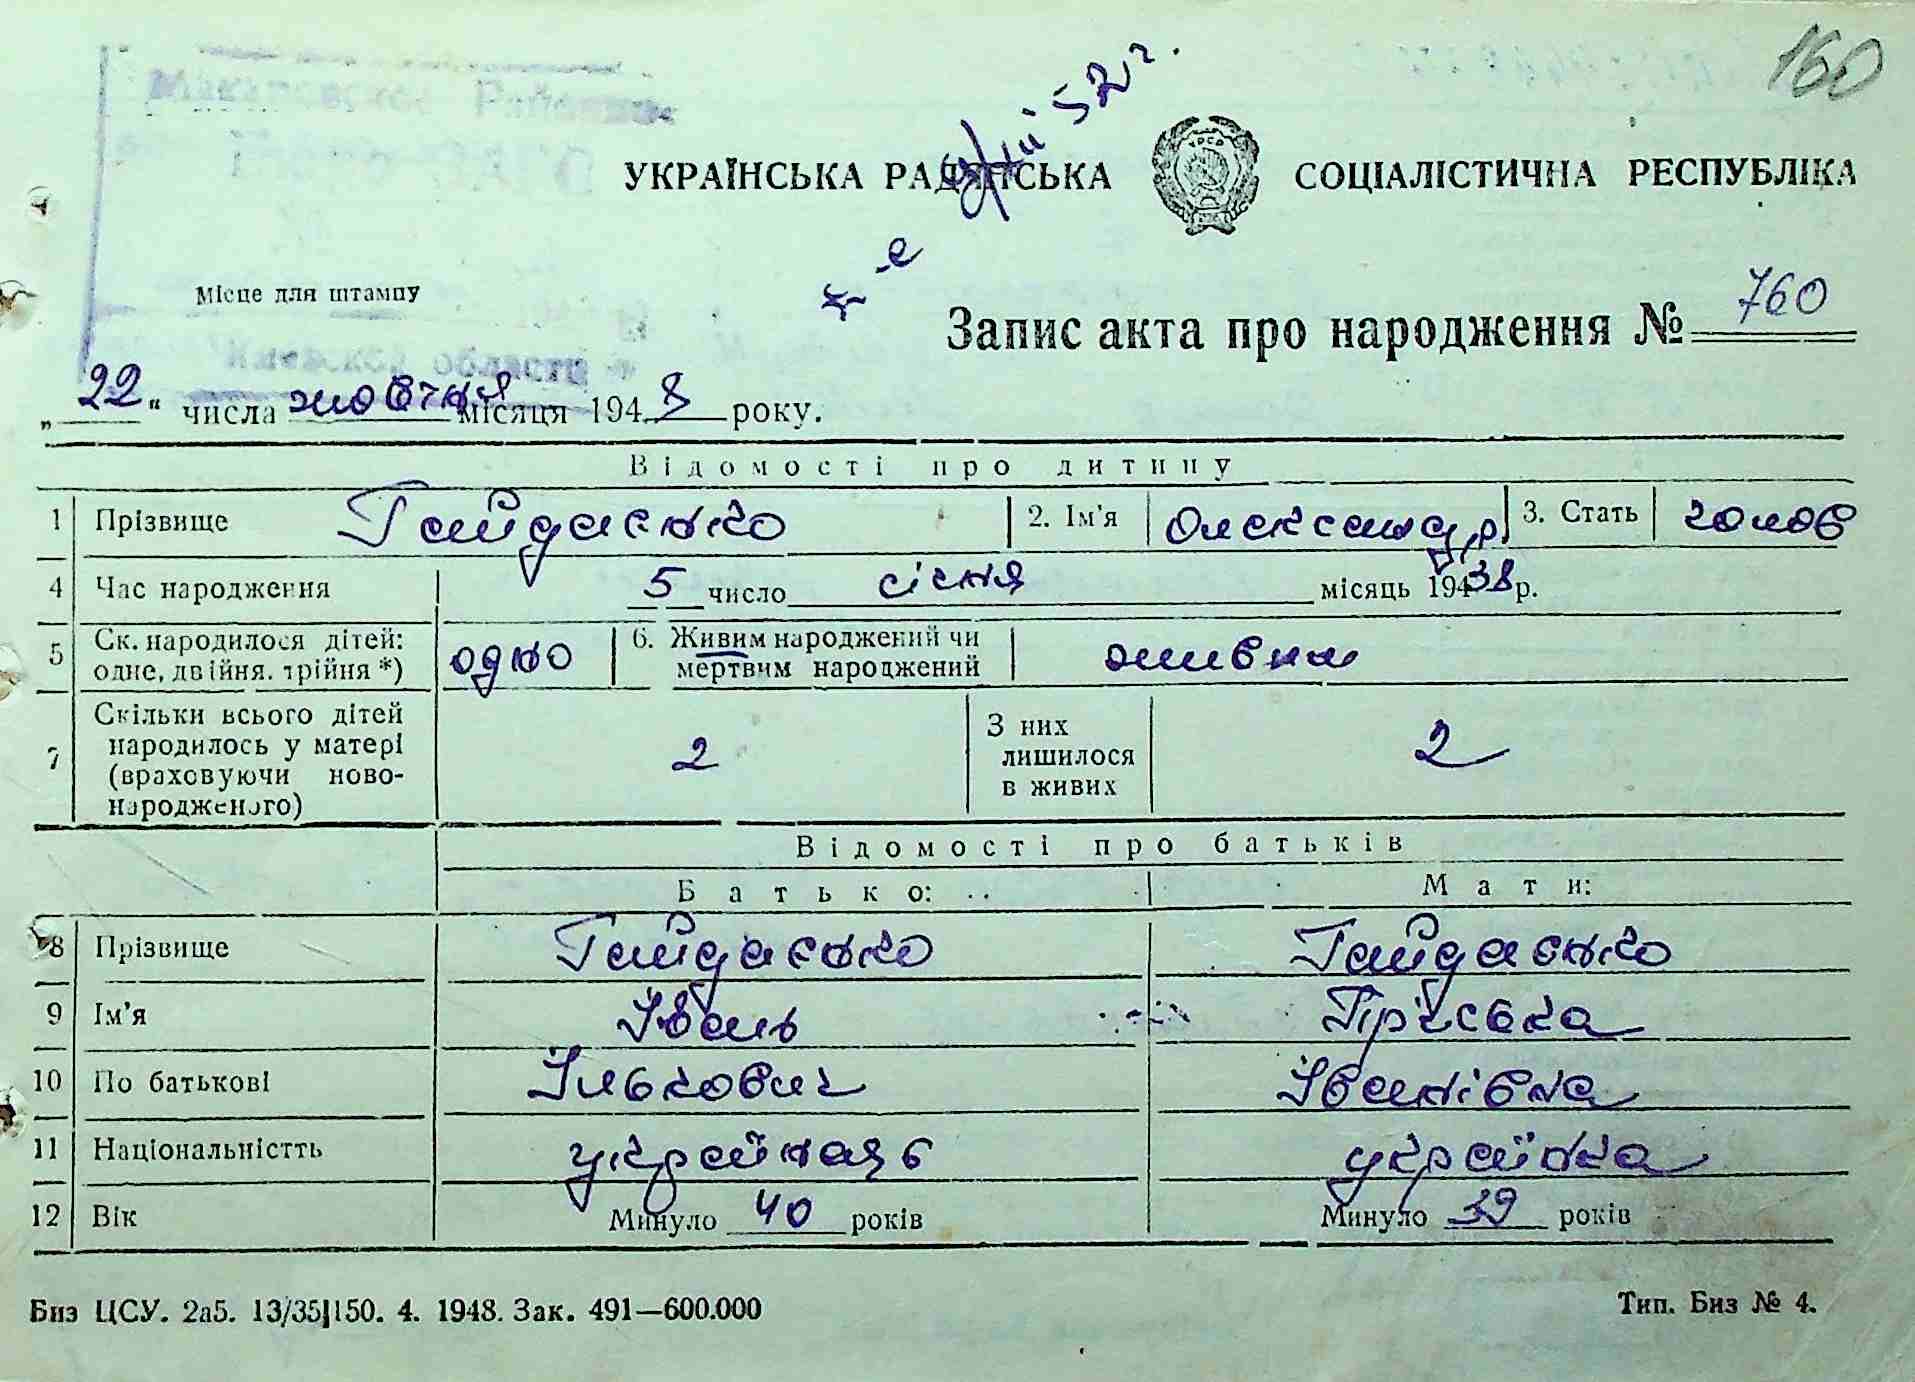 160
Макаровское Районное
Бюро ЗАГС
УКРАЇНСЬКА РАДЯНСЬКА СОЦІАЛІСТИЧНА РЕСПУБЛІКА
52 г.
Місце для штампу
Киевской области
Запис акта про народження № 760
„22“ числа жовтня місяця 1948 року.
Відомості про дитину
1 Прізвище Гайдасько 2. Ім'я Олександр 3. Стать чолов
4 Час народження 5 число січня місяць 1938 р.
5 Ск. народилося дітей: одне, двійня, трійня *) одно 6. Живим народжений чи мертвим народжений живим
7 Скільки всього дітей народилось у матері (враховуючи ново-народженого) 2 З них лишилося в живих 2
Відомості про батьків
Батько: Мати:
8 Прізвище Гайдасько Гайдасько
9 Ім'я Івань Пріська
10 По батькові Ількович Іванівна
11 Національністть українець українка
12 Вік Минуло 40 років Минуло 39 років
Биз ЦСУ. 2а5. 13/35|150. 4. 1948. Зак. 491—600.000 Тип. Биз № 4.